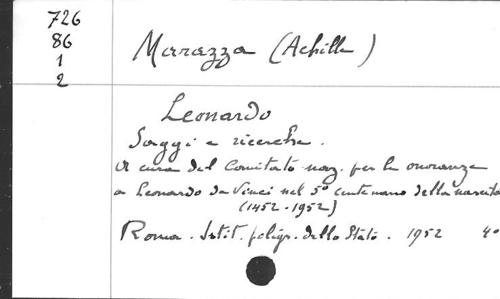 726
86
1
2
Marazza (Achille)
Leonardo
Saggi e ricerche.
A cura del Comitato naz. per le onoranze
a Leonardo da Vinci nel 5º centenario della nascita
(1452-1952)
Roma. Istit. poligr. dello Stato. 1952 4º